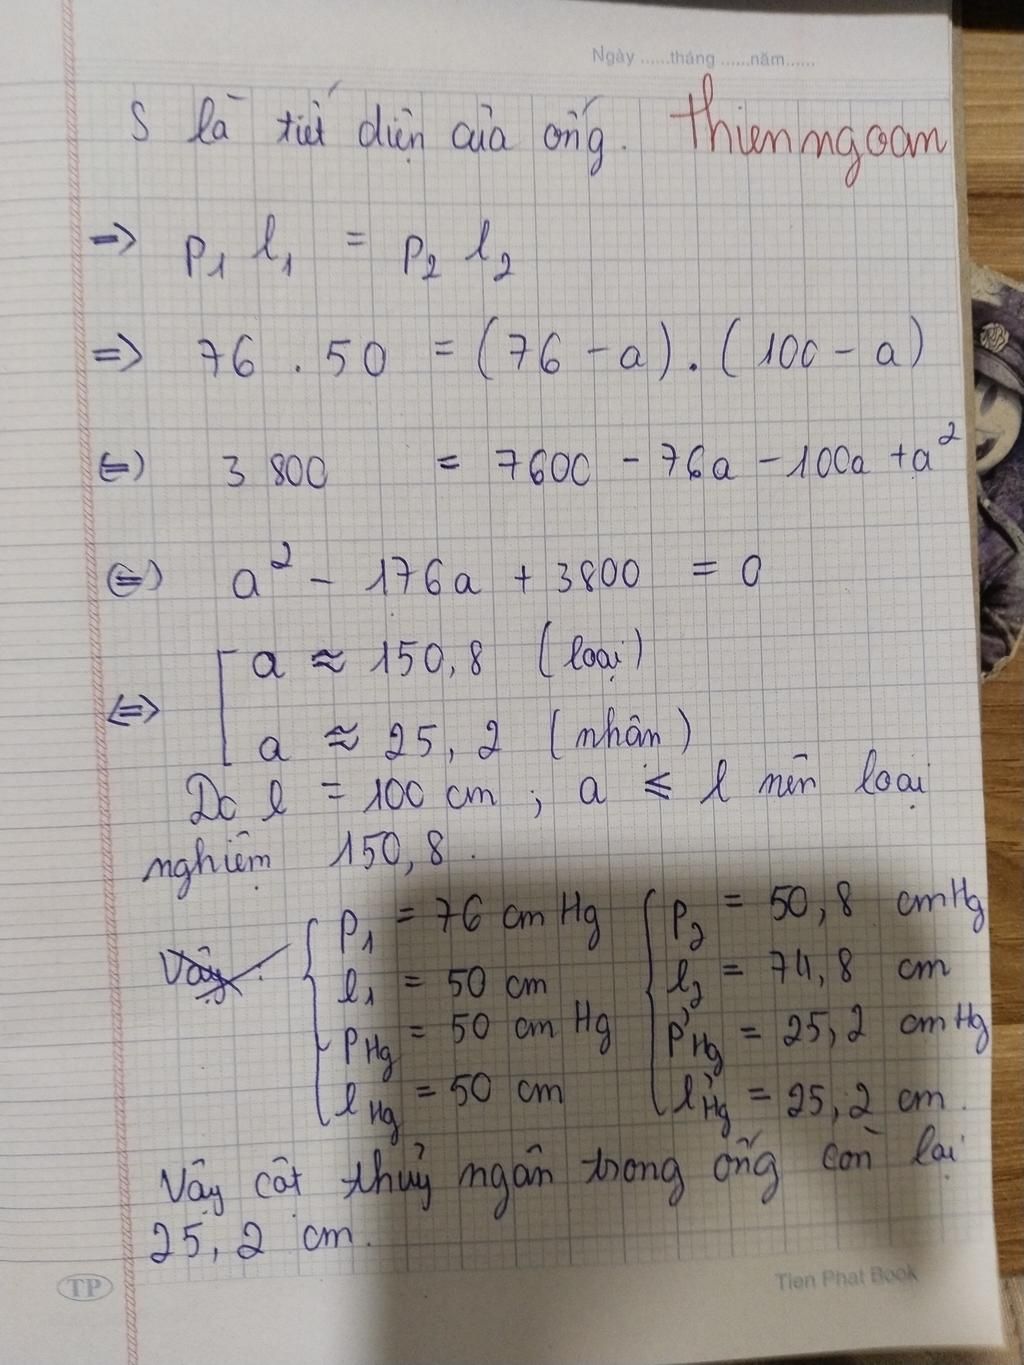 Ngày ......tháng ......năm......
S là tiết diện của ống. thienngoan
=> P₁ l₁ = P₂ l₂
=> 76 . 50 = (76 - a) . (100 - a)
<=> 3 800 = 7600 - 76a - 100a + a²
<=> a² - 176a + 3800 = 0
<=> [ a ≈ 150,8 (loại)
a ≈ 25,2 (nhận)
Do l = 100 cm ; a ≤ l nên loại
nghiệm 150,8.
Vậy: { P₁ = 76 cm Hg { P₂ = 50,8 cmHg
l₁ = 50 cm l₂ = 74,8 cm
P_Hg = 50 cm Hg P'_Hg = 25,2 cmHg
l_Hg = 50 cm l'_Hg = 25,2 cm.
Vậy cột thuỷ ngân trong ống còn lại
25,2 cm.
TP Tien Phat Book